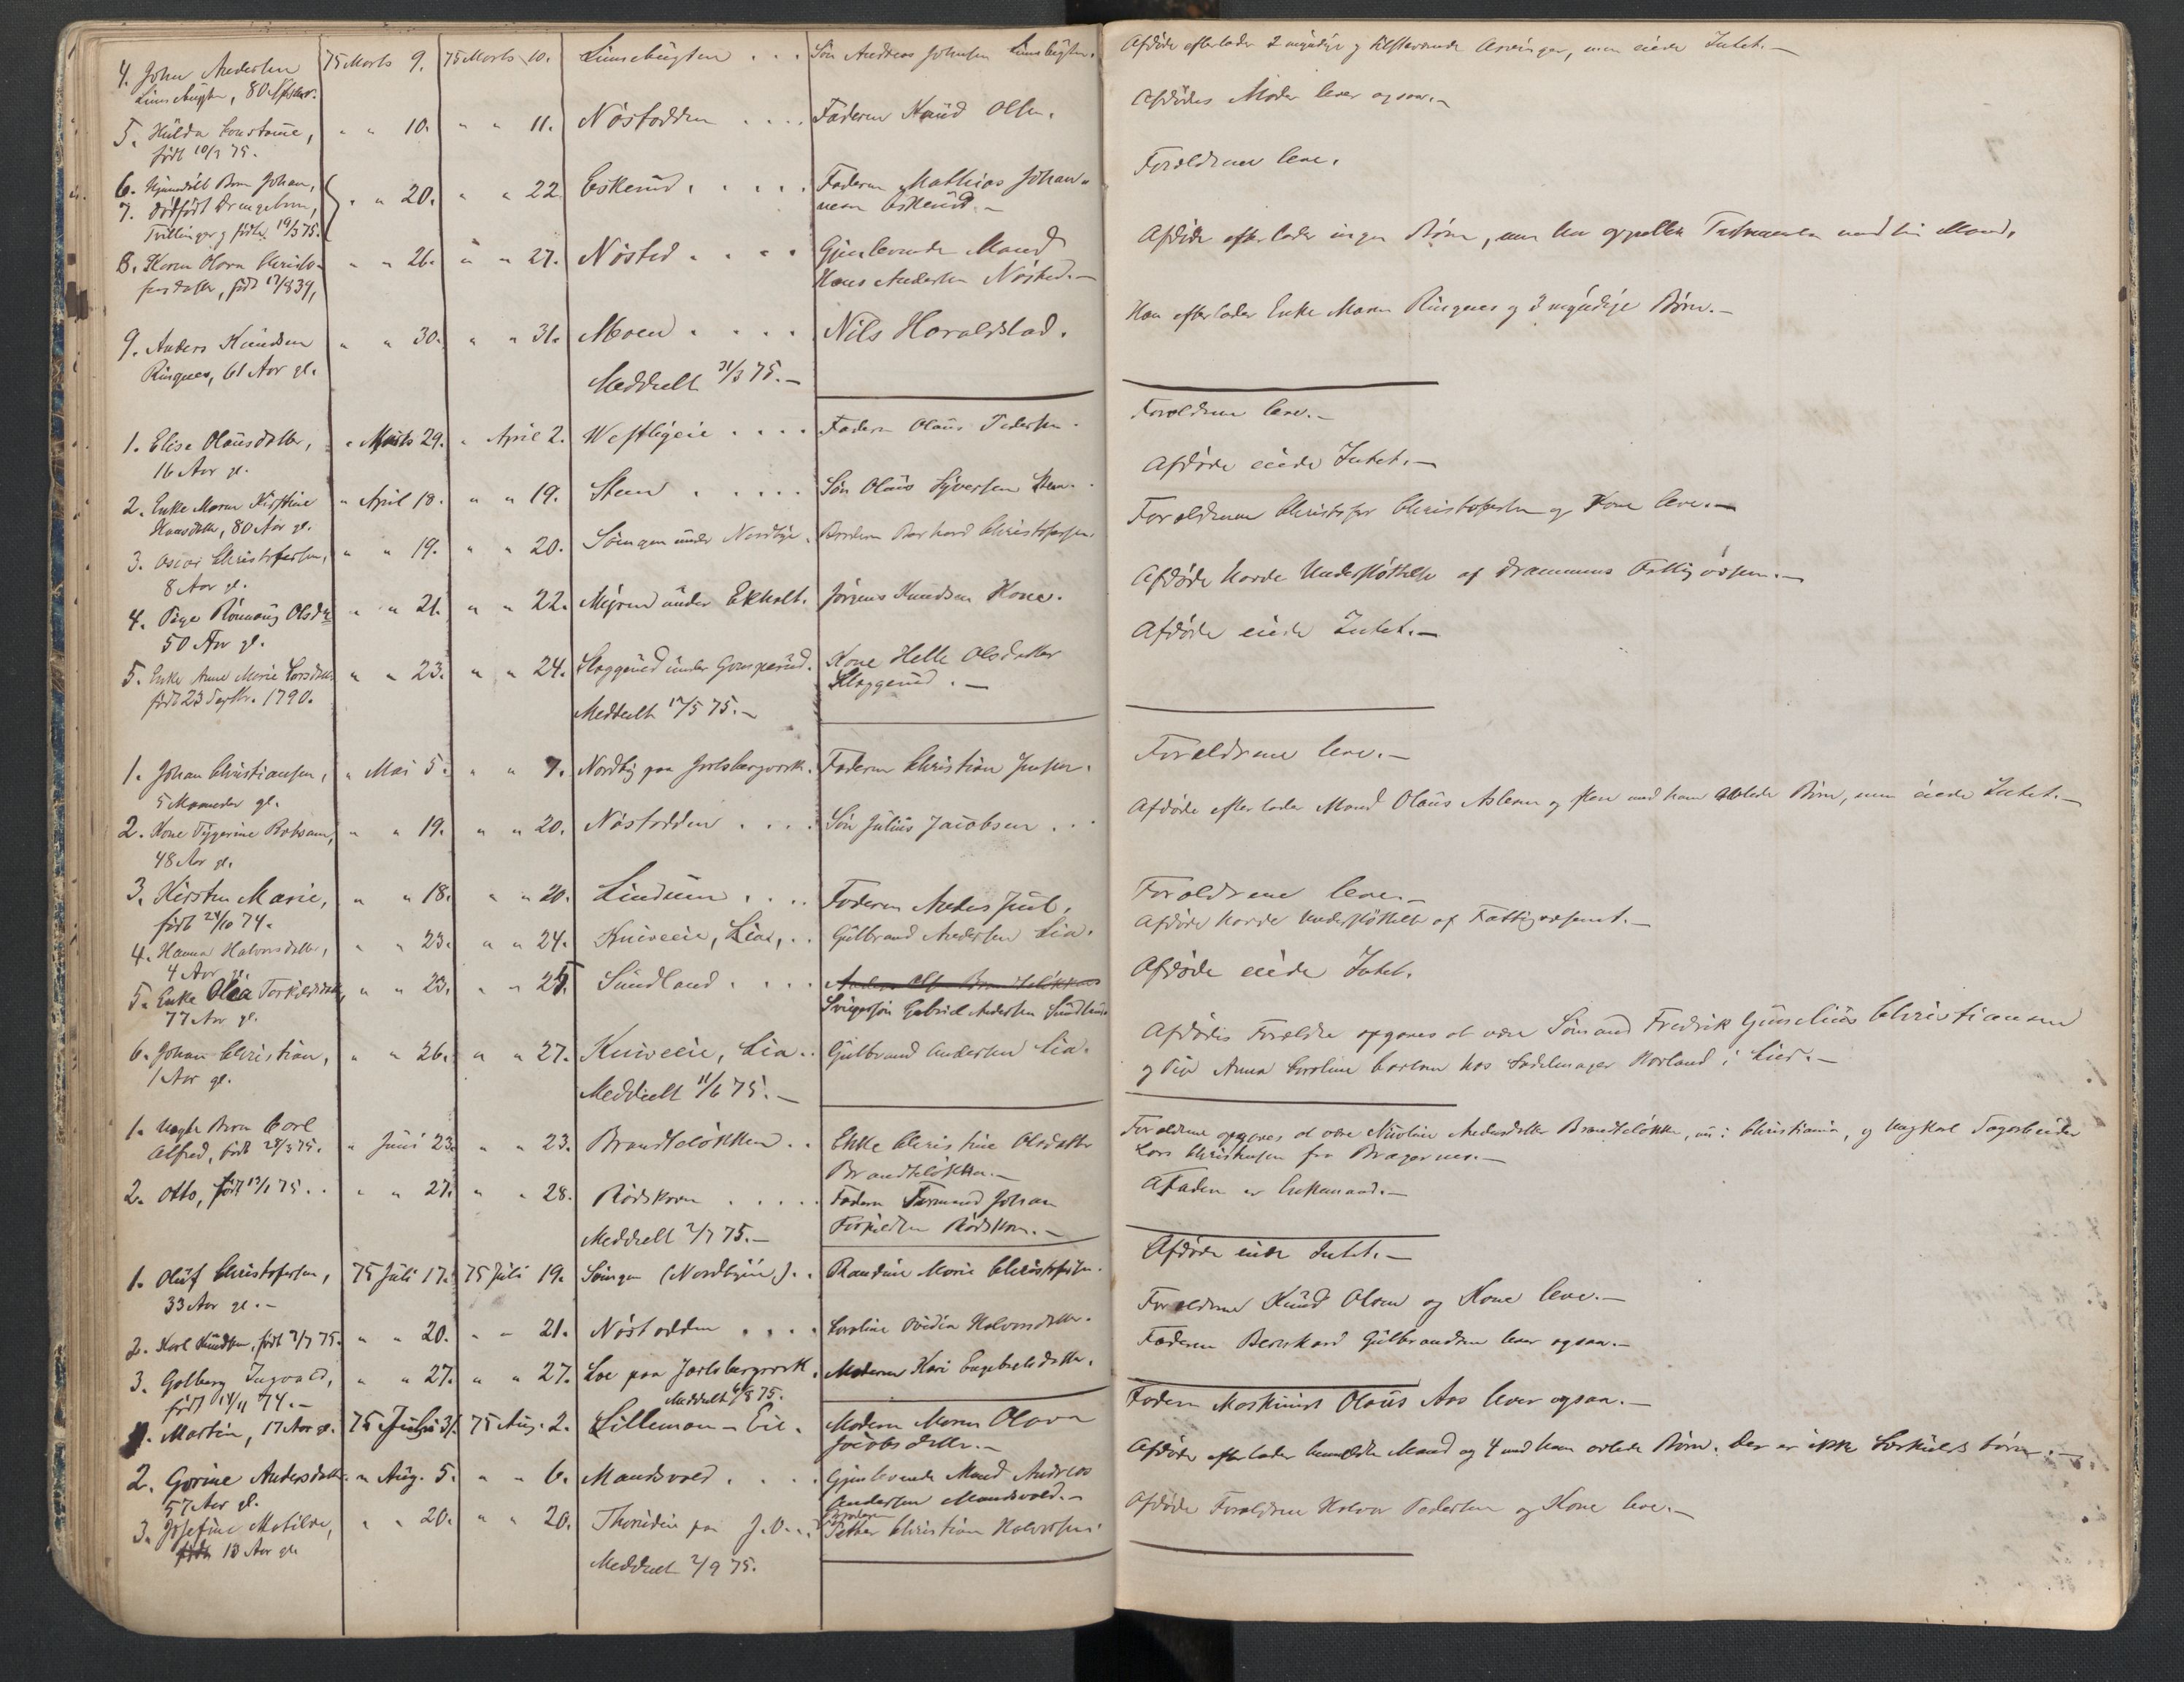 4. John Andersen 75 Marts 9. 75 Marts 10. Linnebugten . . . Søn Andreas Johnsen Linnebugten. Afdøde efterlader 2 myndige og tilstævnede Arvinger, men eiede Intet.—
Linnebugten, 80
5. Hulda Constance, " " 10. " " 11. Nøstodden . . . . Faderen Knud Olsen. Afdødes Moder lever ogsaa.—
født 10/3 75.
6. Hjemdøbt Barn Johan, " " 20. " " 22. Eskerud . . . . . Faderen Mathias Johan- Forældrene leve.
7. dødfødt Drengebarn, nesen Eskerud.—
Tvillinger og fødte 19/3 75.
8. Karen Olava Christo- " " 26. " " 27. Nøsted . . . . Gjenlevende Mand Afdøde efterlader ingen Børn, men har oprettet Testamente med sin Mand.
fersdatter, født 17/8 39, Hans Andersen Nøsted.—
9. Anders Knudsen " " 30. " " 31. Moen . . . . Nils Haraldstad. Han efterlader Enke Maren Ringnes og 3 myndige Børn.—
Ringnes, 61 Aar gl.
Meddeelt 31/3 75.—
1. Elise Olausdatter, " Marts 29. " April 2. Westligeie . . . . Faderen Olaus Pedersen. Forældrene leve.—
16 Aar gl.
2. Enke Maren Kirstine " April 18. " " 19. Steen . . . . . Søn Olaus Syversen Steen. Afdøde eiede Intet.—
Hansdatter, 80 Aar gl.
3. Oscar Christofersen, " " 19. " " 20. Søengen under Nordbye. Broderen Bernhard Christofersen. Forældrene Christofer Christofersen og Kone leve.—
8 Aar gl.
4. Pige Rønnaug Olsdtr. " " 21. " " 22. Myren under Ekholt. Jørgens Knudsen Kone. Afdøde havde Understøttelse af Drammens Fattigvæsen.—
50 Aar gl.
5. Enke Anne Marie Larsdatter " " 23. " " 24. Slaggerud under Gomperud. Kone Helle Olsdatter Afdøde eiede Intet.—
født 23 Septbr. 1790. Slaggerud.—
Meddeelt 17/5 75.—
1. Johan Christiansen, " Mai 5. " " 7. Nordby paa Jarlsbergværk. Faderen Christian Jensen. Forældrene leve.—
5 Maaneder gl.
2. Kone Tygerine Robsam, " " 19. " " 20. Nøstodden . . . . Søn Julius Jacobsen . . Afdøde efterlader Mand Olaus Aslesen og flere med ham avlede Børn, men eiede Intet.—
48 Aar gl.
3. Kirsten Marie, " " 18. " " 20. Lindum . . . . Faderen Anders Juul. Forældrene leve.—
født 24/10 74.
4. Hanna Halvorsdatter, " " 23. " " 24. Kniveeie, Lia, . . Gulbrand Andersen Lia. Afdøde havde Understøttelse af Fattigvæsenet.—
4 Aar gl.
5. Enke Olea Torkildsdatter, " " 23. " " 25. Sundland . . . . Afdøde eiede Intet.
77 Aar gl. Svigersøn Gabriel Andersen Sundland
6. Johan Christian, " " 26. " " 27. Kniveeie, Lia . . Gulbrand Andersen Lia. Afdødes Forældre opgaves at være Sømand Fredrik Gunelius Christiansen
1 Aar gl. og Pige Anna Caroline Carlsen hos Sadelmager Harland i Lier.—
Meddeelt 11/6 75.—
1. Uægte Barn Carl " Juni 23. " " 23. Brandteløkken . . Enke Christine Olsdatter Forældrene opgaves at være Nicoline Andersdatter Brandteløkke, nu i Christiania, og Ungkarl Dagarbeider
Alfred, født 28/3 75. Brandteløkken.— Lars Christensen fra Bragernes.—
2. Otto, født 13/1 75 . . " " 27. " " 28. Rødskoven . . . . . Faderen Formand Johan Faderen er Enkemand.—
Torkildsen Rødskoven.—
Meddeelt 2/7 75.—
1. Oluf Christofersen, 75 Juli 17. 75 Juli 19. Søengen (Nordbyeie) . . Randine Marie Christofersen. Afdøde eiede Intet.—
33 Aar gl.—
2. Karl Knudsen, født 3/7 75. " " 20. " " 21. Nøstodden . . . . Caroline Ovidia Halvorsdatter. Forældrene Knud Olsen og Kone leve.—
3. Golberg Ingvald, " " 27. " " 27. Loe paa Jarlsbergværk. Moderen Kari Engebretsdatter. Faderen Bernhard Gulbrandsen lever ogsaa.—
født 14/11 74.— Meddeelt 6/8 75.
1. Martin, 17 Aar gl. 75 Juli 31. 75 Aug. 2. Lilleman-Eie. Moderen Maren Olava Faderen Maskinist Olaus Aas lever ogsaa.—
Jacobsdatter.—
2. Gorine Andersdatter. " Aug. 5. " " 6. Mandsvold . . . . Gjenlevende Mand Andreas Afdøde efterlader bemeldte Mand og 4 med ham avlede Børn. Der er ikke Særkuldsbørn.—
57 Aar gl. Andersen Mandsvold.—
3. Josefine Matilde, " " 20. " " 20. Thorudeie paa J.V. . . Broderen Petter Christian Halvorsen. Afdødes Forældrene Halvor Pedersen og Kone leve.—
født 13 Aar gl.
Meddeelt 2/9 75.